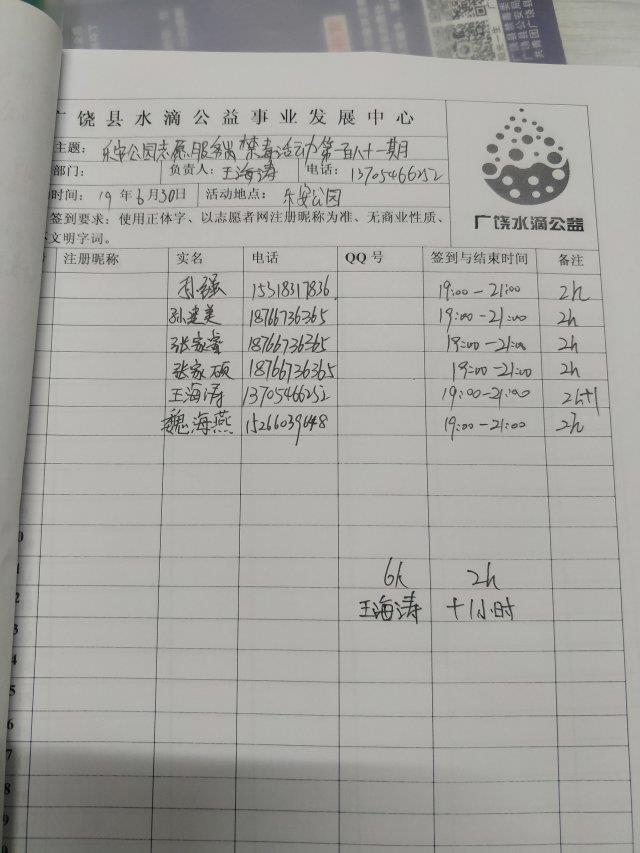 广饶县水滴公益事业发展中心
主题: 乐安公园志愿服务岗禁毒活动第一百八十一期月
部门: 负责人: 王海涛 电话: 13705466252
时间: 19年6月30日 活动地点: 乐安公园
签到要求: 使用正体字、以志愿者网注册昵称为准、无商业性质、
文明字词。
广饶水滴公益
注册昵称 实名 电话 QQ号 签到与结束时间 备注
孙强 15318317836 19:00-21:00 2h
孙建美 18766736365 19:00-21:00 2h
张家睿 18766736365 19:00-21:00 2h
张家硕 18766736365 19:00-21:00 2h
王海涛 13705466252 19:00-21:00 2h+1
魏海燕 15266039648 19:00-21:00 2h
6人 2h
王海涛 +1小时